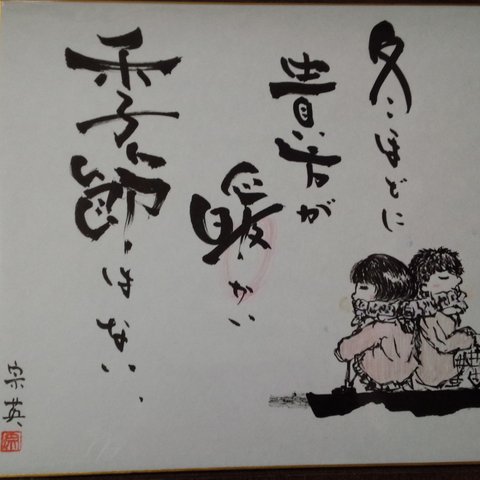 冬ほどに
貴方が
暖かい
季節はない、